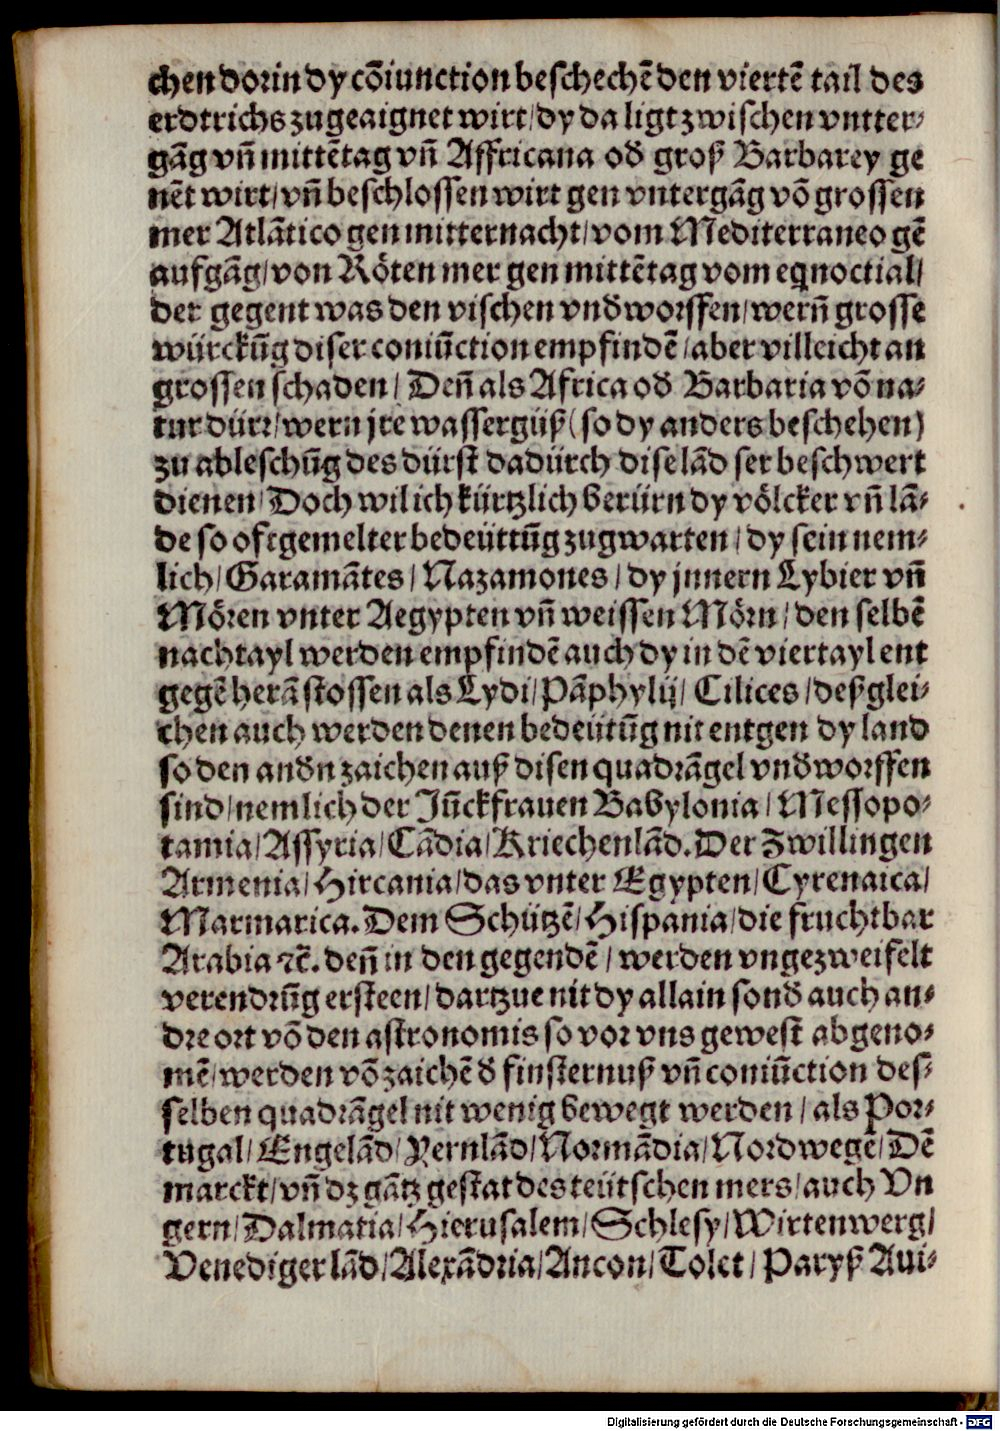 chen dorin dy cõiunction beschechẽ den viertẽ tail des
erdtrichs zugeaignet wirt/ dy da ligt zwischen vntter⸗
gãg vñ mittẽtag vñ Affricana od̕ groß Barbarey ge
nẽt wirt/ vñ beschlossen wirt gen vntergãg võ grossen
mer Atlãtico gen mitternacht/ vom Mediterraneo gẽ
aufgãg/ von Röten mer gen mittẽtag vom eqnoctial/
der gegent was den vischen vnd̕worffen/ werñ grosse
würckũg diser coniũction empfindẽ/ aber villeicht an
grossen schaden/ Deñ als Africa od̕ Barbaria võ na⸗
tur dürr/ wern jre wassergüß (so dy anders beschehen)
zu ableschũg des dürst dadürch dise lãd ser beschwert
dienen/ Doch wil ich kürtzlich berürn dy völcker vñ lã⸗
de so oftgemelter bedeüttũg zugwarten/ dy sein nem⸗
lich/ Garamãtes/ Nazamones/ dy jnnern Lybier vñ
Mören vnter Aegypten vñ weissen Mörn/ den selbẽ
nachtayl werden empfindẽ auch dy in dẽ viertayl ent
gegẽ herã stossen als Lydi/ Pãphylij/ Cilices/ deßglei⸗
chen auch werden denen bedeütũg nit entgen dy land
so den and̕n zaichen auß disen quadrãgel vnd̕worffen
sind/ nemlich der Jũckfrauen Babylonia/ Messopo⸗
tamia/ Assyria/ Cãdia/ Kriechenlãd. Der Zwillingen
Armenia/ Hircania/ das vnter Egypten/ Cyrenaica/
Marmarica. Dem Schützẽ/ Hispania/ die fruchtbar
Arabia ꝛc̃. deñ in den gegendẽ/ werden vngezweifelt
verendrũg ersteen/ dartzue nit dy allain sond̕ auch an⸗
dre ort võ den astronomis so vor vns gewest abgeno⸗
mẽ/ werden võ zaichẽ d̕ finsternuß vñ coniũction des⸗
selben quadrãgel nit wenig bewegt werden/ als Por⸗
tugal/ Engelãd/ Yernlãd/ Normãdia/ Nordwegẽ/ Dẽ
marckt/ vñ dz gãtz gestat des teütschen mers/ auch Vn
gern/ Dalmatia/ Hierusalem/ Schlesy/ Wirtenwerg/
Venediger lãd/ Alexãdria/ Ancon/ Tolet/ Paryß Aui⸗
Digitalisierung gefördert durch die Deutsche Forschungsgemeinschaft - DFG